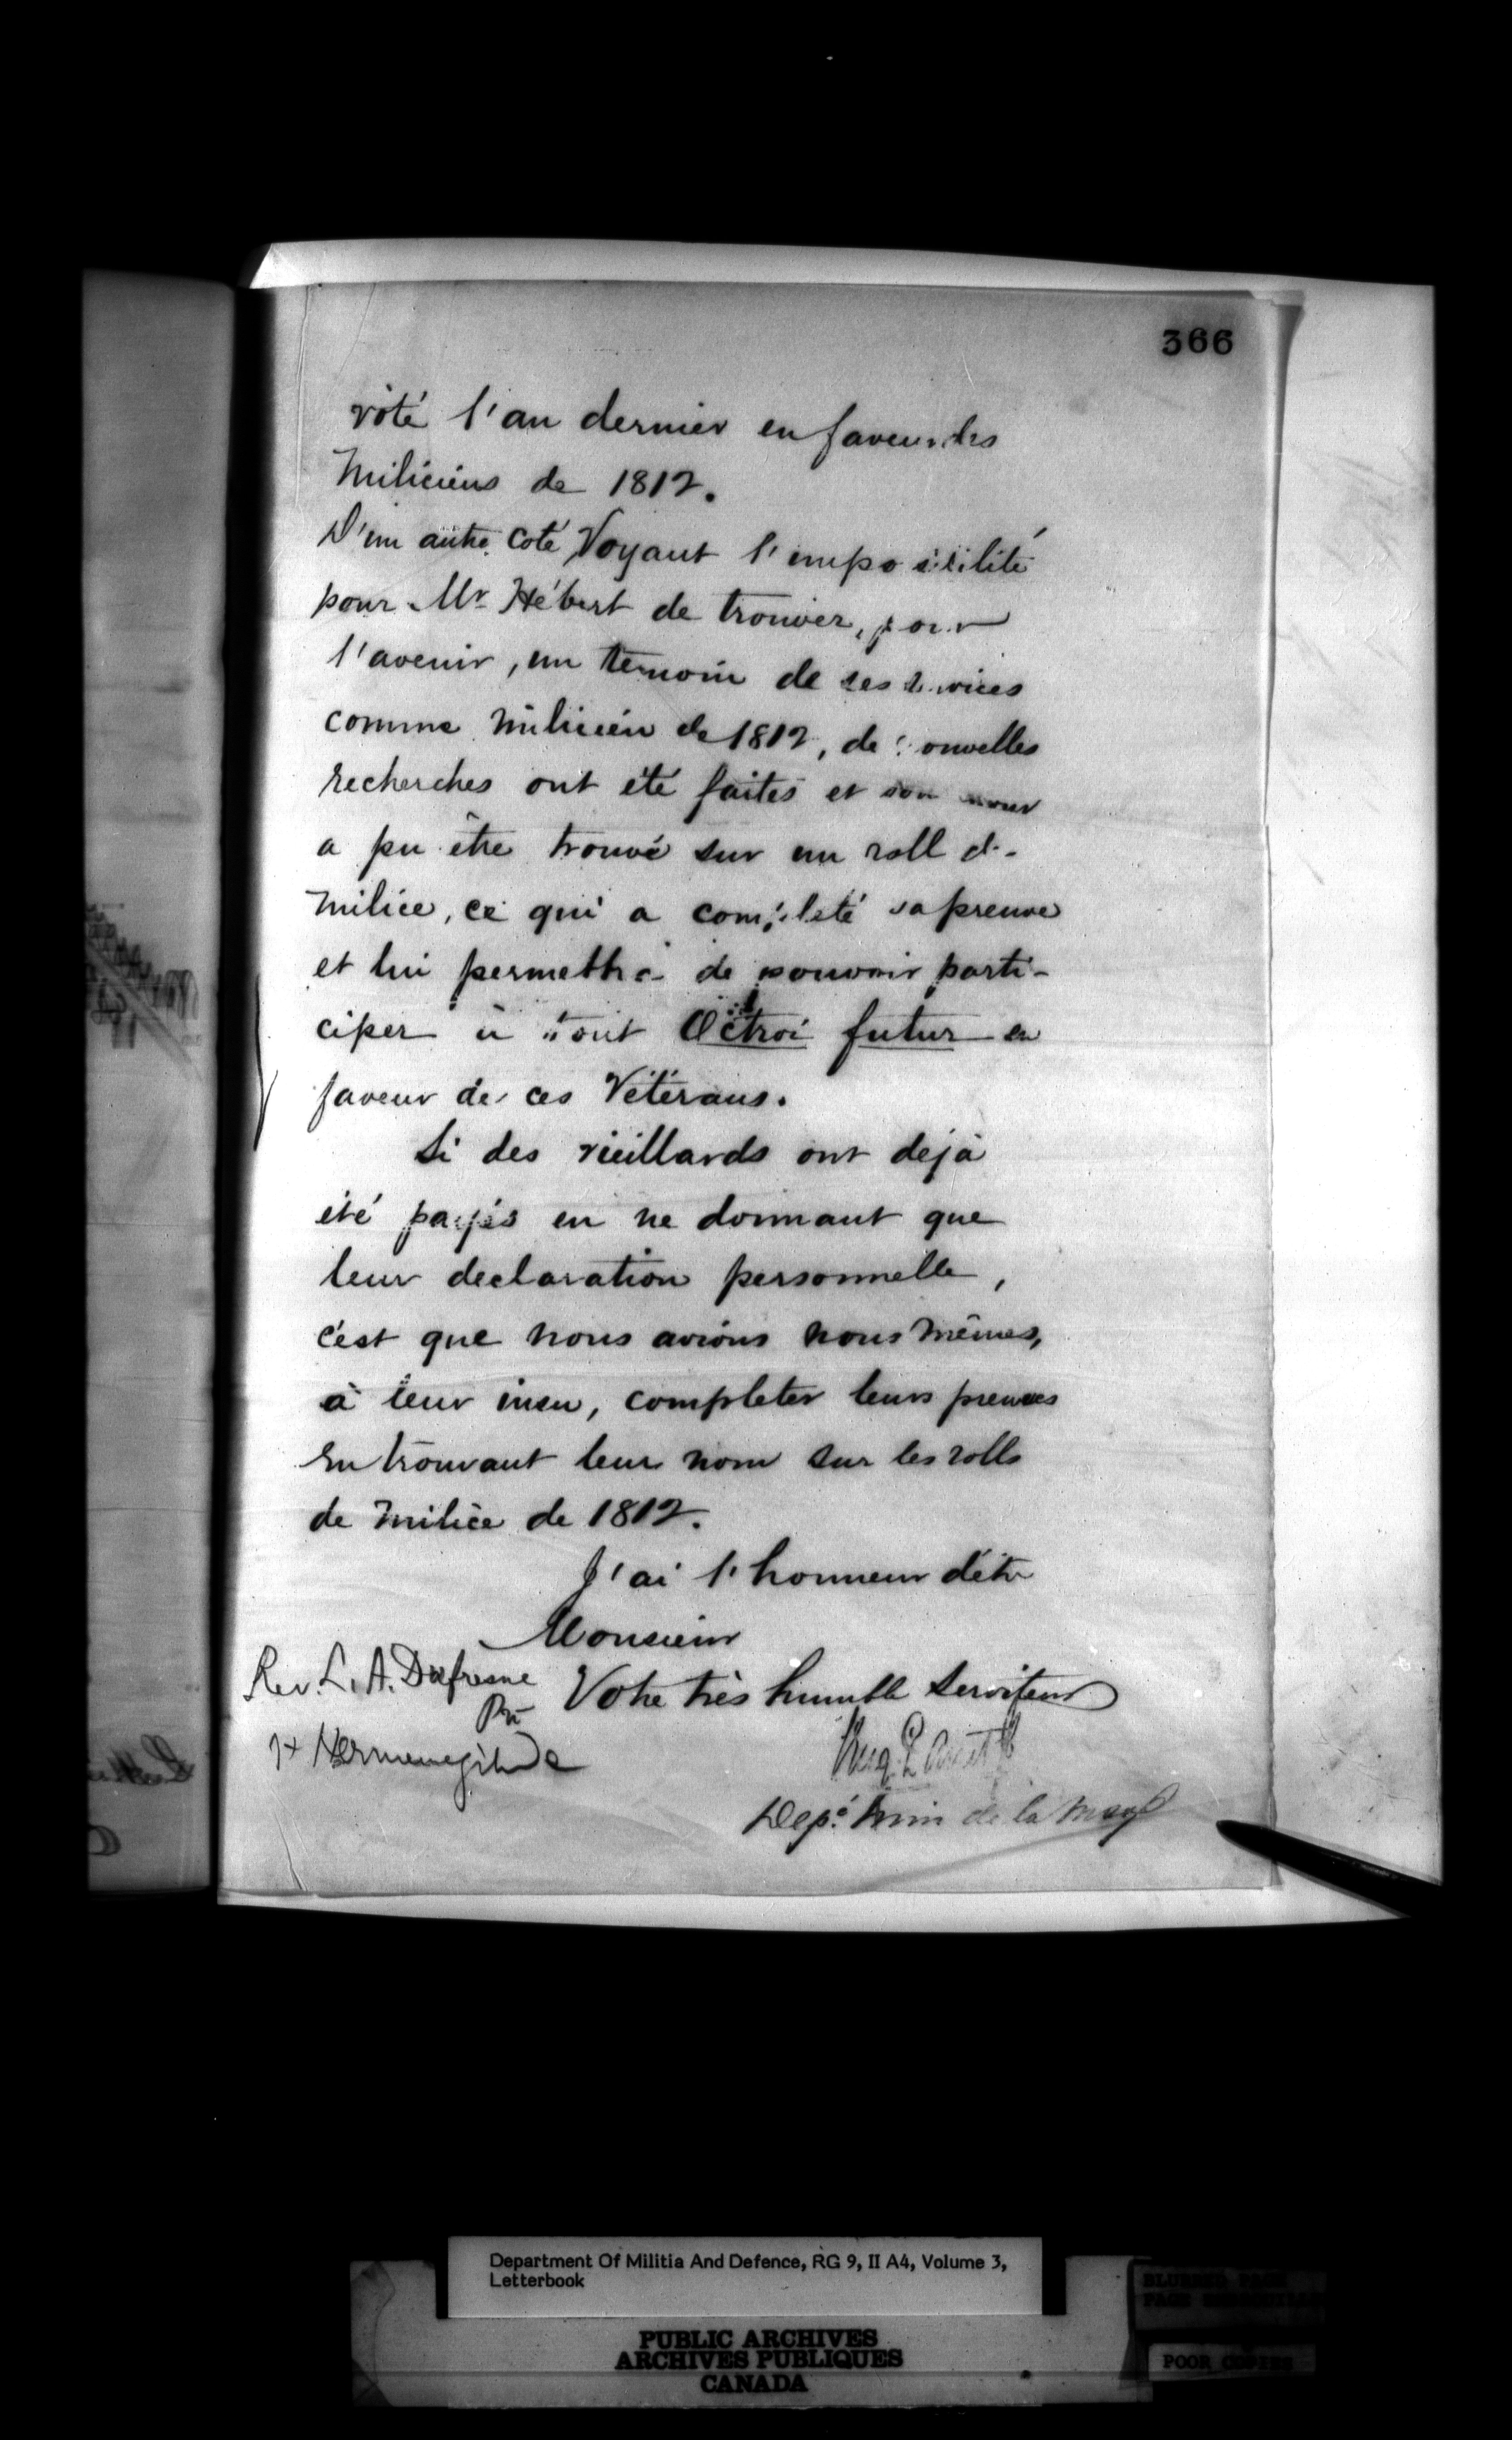 366
voté l'an dernier en faveur des
Miliciens de 1812.
D'un autre coté Voyant l'impossibilité
pour Mr Hébert de trouver, pour
l'avenir, un temoin de ses services
comme Milicien de 1812, de nouvelles
recherches ont été faites et son nom
a pu être trouvé sur un roll de
Milice, ce qui a completé sa preuve
et lui permettra de pouvoir parti-
ciper à tout Octroi futur en
faveur de ces Vétérans.
Si des vieillards ont dejà
été payés en ne donnant que
leur declaration personnelle,
c'est que nous avions nous mêmes,
à leur insu, completer leurs preuves
en trouvant leur nom sur les rolls
de Milice de 1812.
J'ai l'honneur d'être
Monsieur
Votre très humble Serviteur
Rev. L. A. Dufresne
Ptr
St Hermenegilde
Dep. Min de la
Department Of Militia And Defence, RG 9, II A4, Volume 3,
Letterbook
PUBLIC ARCHIVES
ARCHIVES PUBLIQUES
CANADA
POOR COPIES